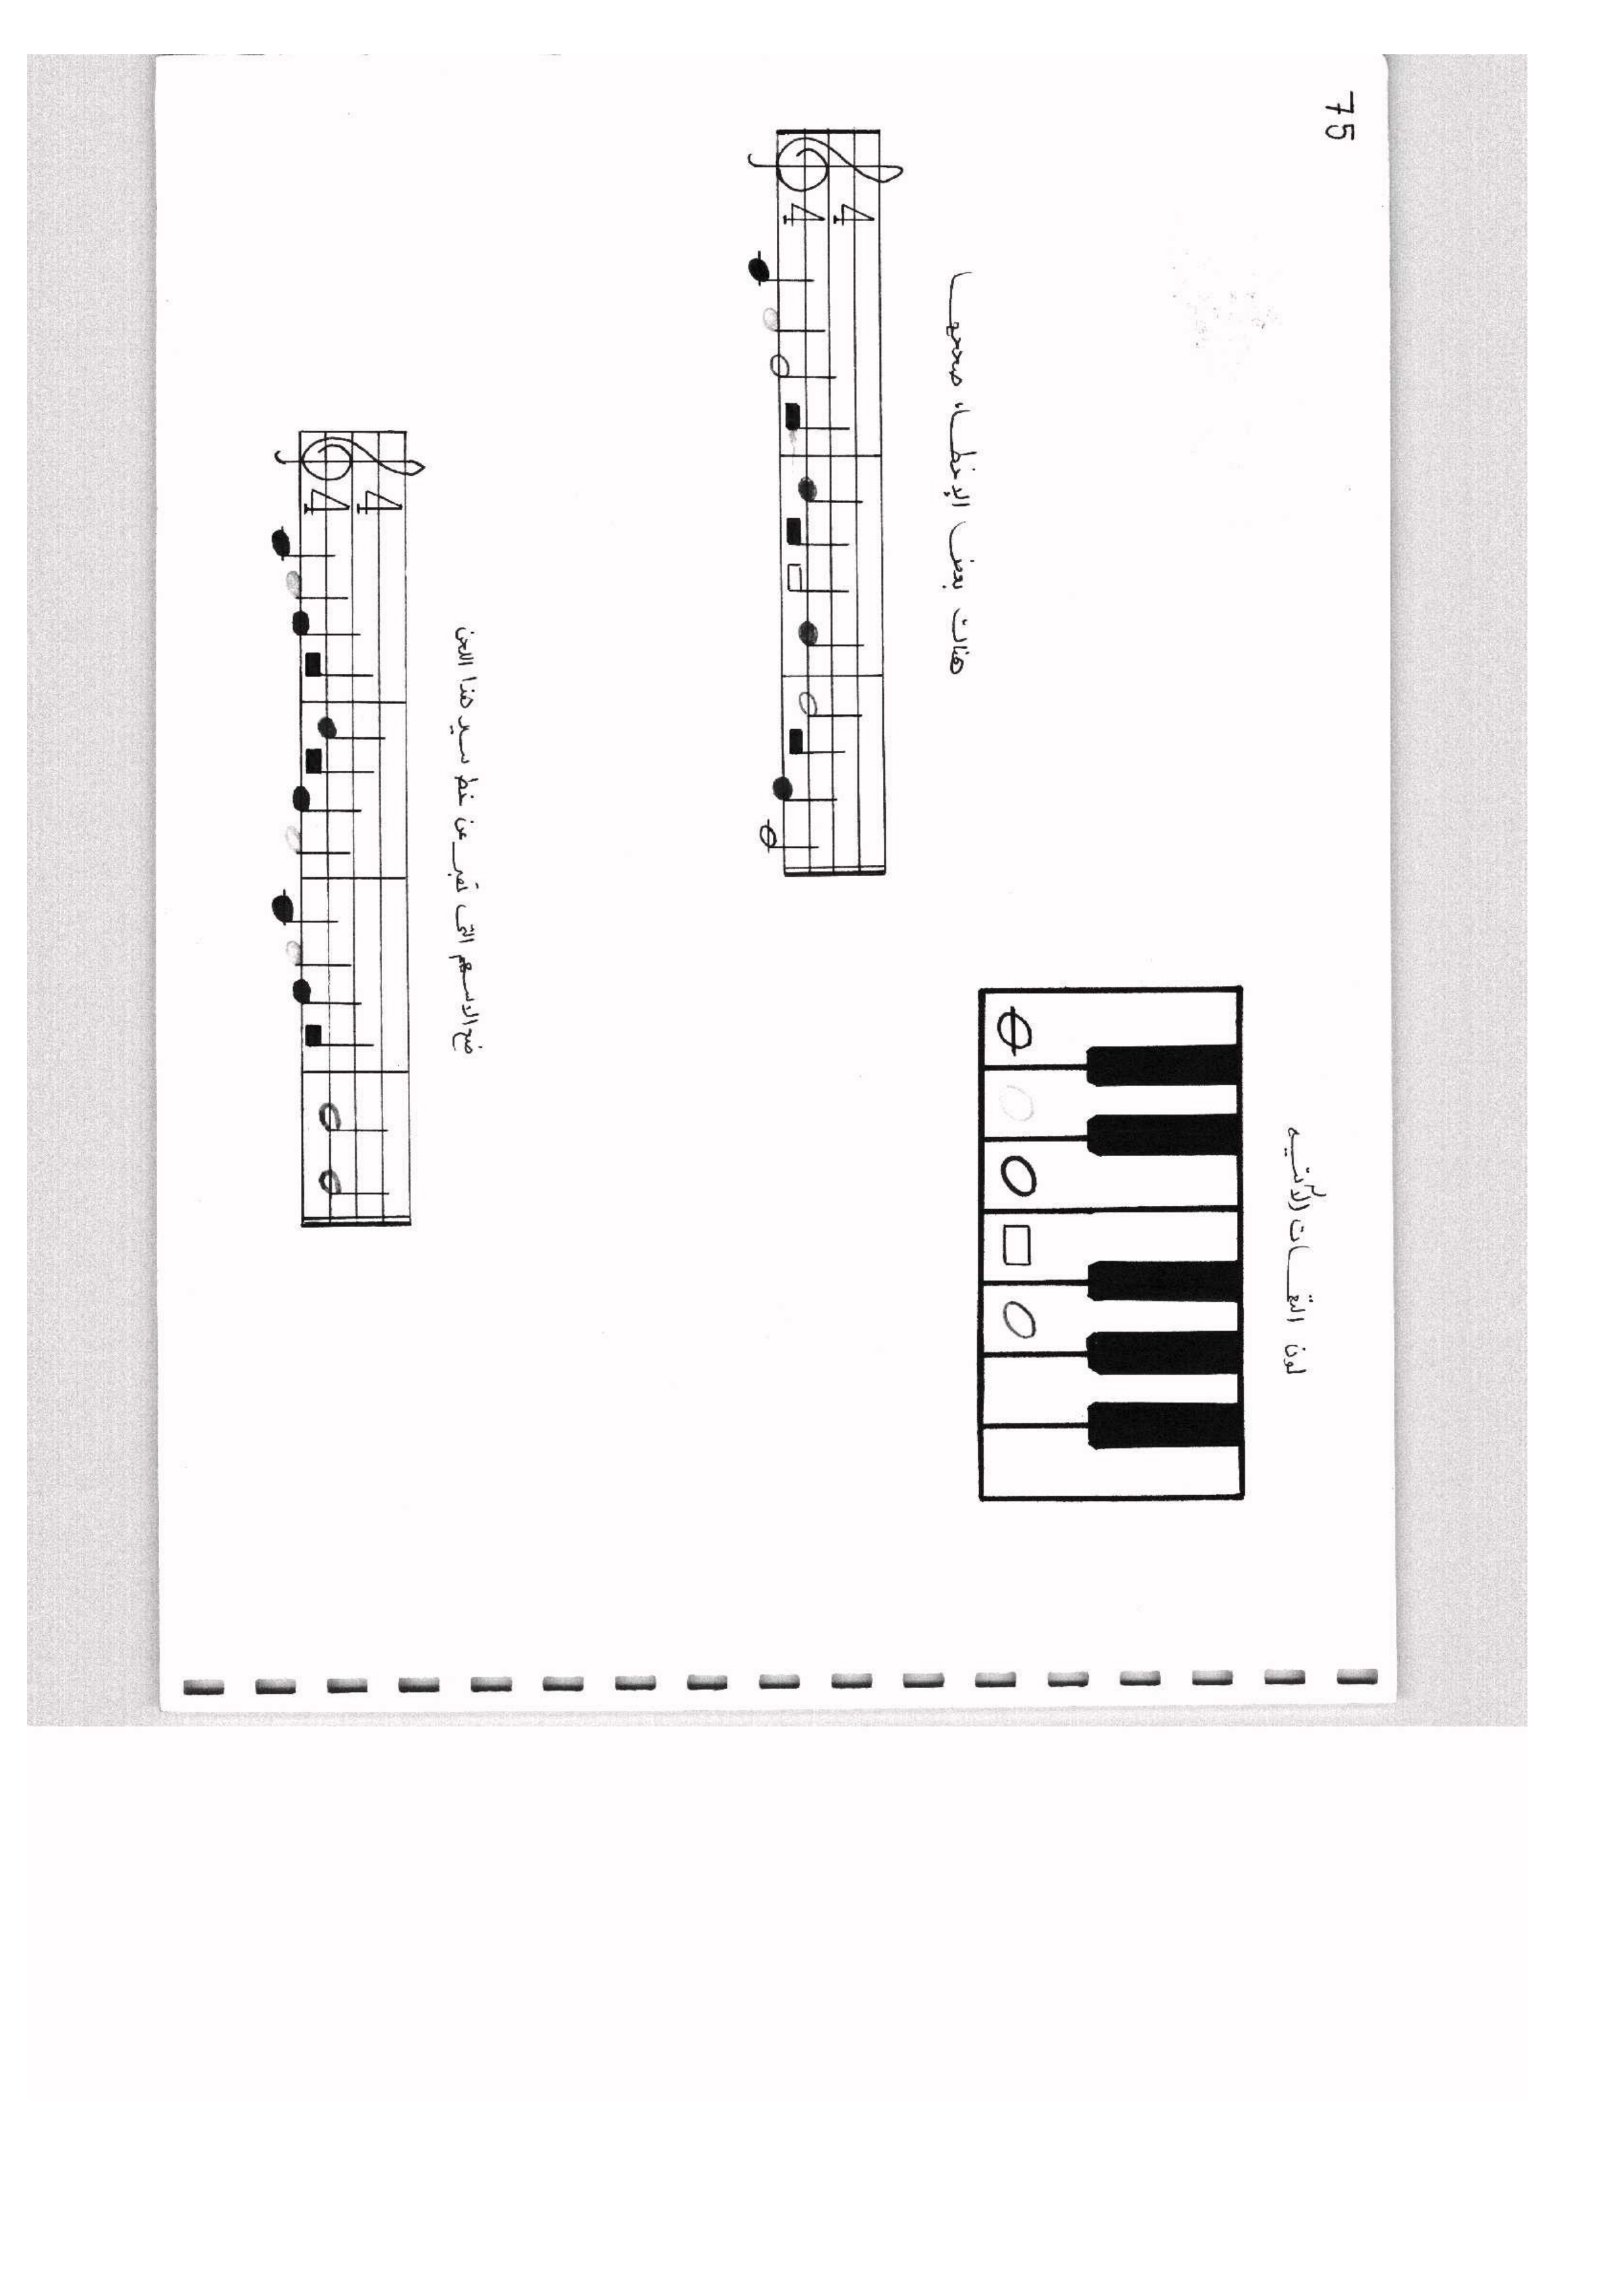 75
لون النغمات الآتيه
هناك بعض الإخطاء صححيها
4
4
ضع الاسهم التى تعبر عن خط سير هذا اللحن
4
4